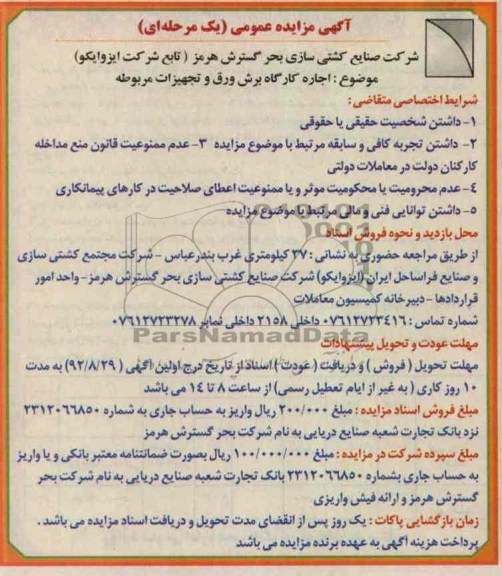 آگهی مزایده عمومی (یک مرحله‌ای)
شرکت صنایع کشتی سازی بحر گسترش هرمز ( تابع شرکت ایزوایکو)
موضوع : اجاره کارگاه برش ورق و تجهیزات مربوطه
شرایط اختصاصی متقاضی :
۱- داشتن شخصیت حقیقی یا حقوقی
۲- داشتن تجربه کافی و سابقه مرتبط با موضوع مزایده ۳- عدم ممنوعیت قانون منع مداخله
کارکنان دولت در معاملات دولتی
۴- عدم محرومیت یا محکومیت موثر و یا ممنوعیت اعطای صلاحیت در کارهای پیمانکاری
۵- داشتن توانایی فنی و مالی مرتبط با موضوع مزایده
محل بازدید و نحوه فروش اسناد
از طریق مراجعه حضوری به نشانی : ۳۷ کیلومتری غرب بندرعباس - شرکت مجتمع کشتی سازی
و صنایع فراساحل ایران (ایزوایکو) شرکت صنایع کشتی سازی بحر گسترش هرمز - واحد امور
قراردادها - دبیرخانه کمیسیون معاملات
شماره تماس : ۰۷۶۱۲۷۲۳۴۱۶ داخلی ۲۱۵۸ داخلی نمابر ۰۷۶۱۲۷۲۳۲۷۸
ParsNamadData
مهلت عودت و تحویل پیشنهادات
مهلت تحویل ( فروش ) و دریافت ( عودت ) اسناد از تاریخ درج اولین آگهی ( ۹۲/۸/۲۹) به مدت
۱۰ روز کاری ( به غیر از ایام تعطیل رسمی) از ساعت ۸ تا ۱۴ می باشد
مبلغ فروش اسناد مزایده : مبلغ ۲۰۰/۰۰۰ ریال واریز به حساب جاری به شماره ۲۳۱۲۰۶۶۸۵۰
نزد بانک تجارت شعبه صنایع دریایی به نام شرکت بحر گسترش هرمز
مبلغ سپرده شرکت در مزایده : مبلغ ۱۰۰/۰۰۰/۰۰۰ ریال بصورت ضمانتنامه معتبر بانکی و یا واریز
به حساب جاری بشماره ۲۳۱۲۰۶۶۸۵۰ بانک تجارت شعبه صنایع دریایی به نام شرکت بحر
گسترش هرمز و ارائه فیش واریزی
زمان بازگشایی پاکات : یک روز پس از انقضای مدت تحویل و دریافت اسناد مزایده می باشد .
پرداخت هزینه آگهی به عهده برنده مزایده می باشد